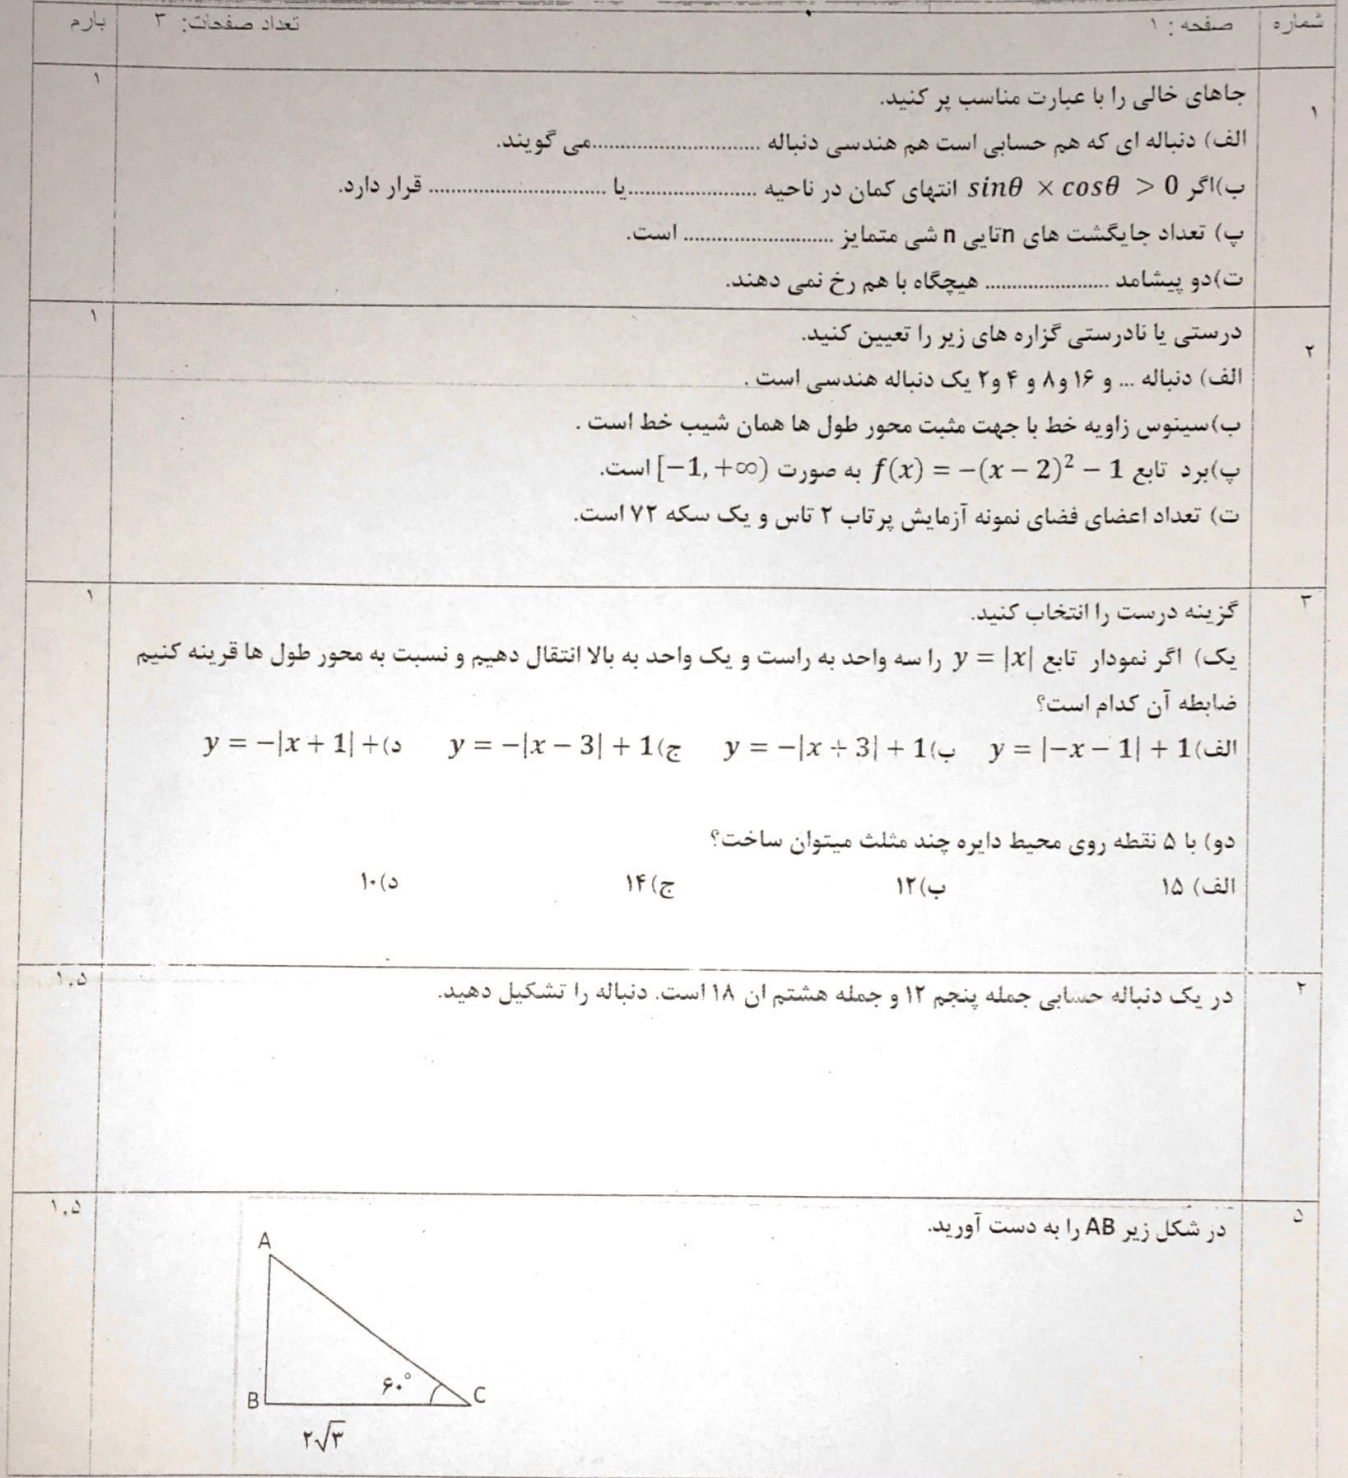 شماره صفحه : ۱ تعداد صفحات: ۳ بارم
۱ جاهای خالی را با عبارت مناسب پر کنید. ۱
الف) دنباله ای که هم حسابی است هم هندسی دنباله ...............................می گویند.
ب)اگر sinθ × cosθ > 0 انتهای کمان در ناحیه ........................یا ................................ قرار دارد.
پ) تعداد جایگشت های nتایی n شی متمایز ............................ است.
ت)دو پیشامد ....................... هیچگاه با هم رخ نمی دهند.
۲ درستی یا نادرستی گزاره های زیر را تعیین کنید. ۱
الف) دنباله ... و ۱۶ و۸ و ۴ و۲ یک دنباله هندسی است .
ب)سینوس زاویه خط با جهت مثبت محور طول ها همان شیب خط است .
پ)برد تابع f(x) = −(x − 2)² − 1 به صورت [−1, +∞) است.
ت) تعداد اعضای فضای نمونه آزمایش پرتاب ۲ تاس و یک سکه ۷۲ است.
۳ گزینه درست را انتخاب کنید. ۱
یک) اگر نمودار تابع y = |x| را سه واحد به راست و یک واحد به بالا انتقال دهیم و نسبت به محور طول ها قرینه کنیم
ضابطه آن کدام است؟
الف)y = |−x − 1| + 1 ب)y = −|x ÷ 3| + 1 ج)y = −|x − 3| + 1 د)y = −|x + 1| +
دو) با ۵ نقطه روی محیط دایره چند مثلث میتوان ساخت؟
الف) ۱۵ ب)۱۲ ج)۱۴ د)۱۰
۲ در یک دنباله حسابی جمله پنجم ۱۲ و جمله هشتم ان ۱۸ است. دنباله را تشکیل دهید. ۱.۵
۵ در شکل زیر AB را به دست آورید. ۱.۵
A
۶۰°
B C
۲√۳